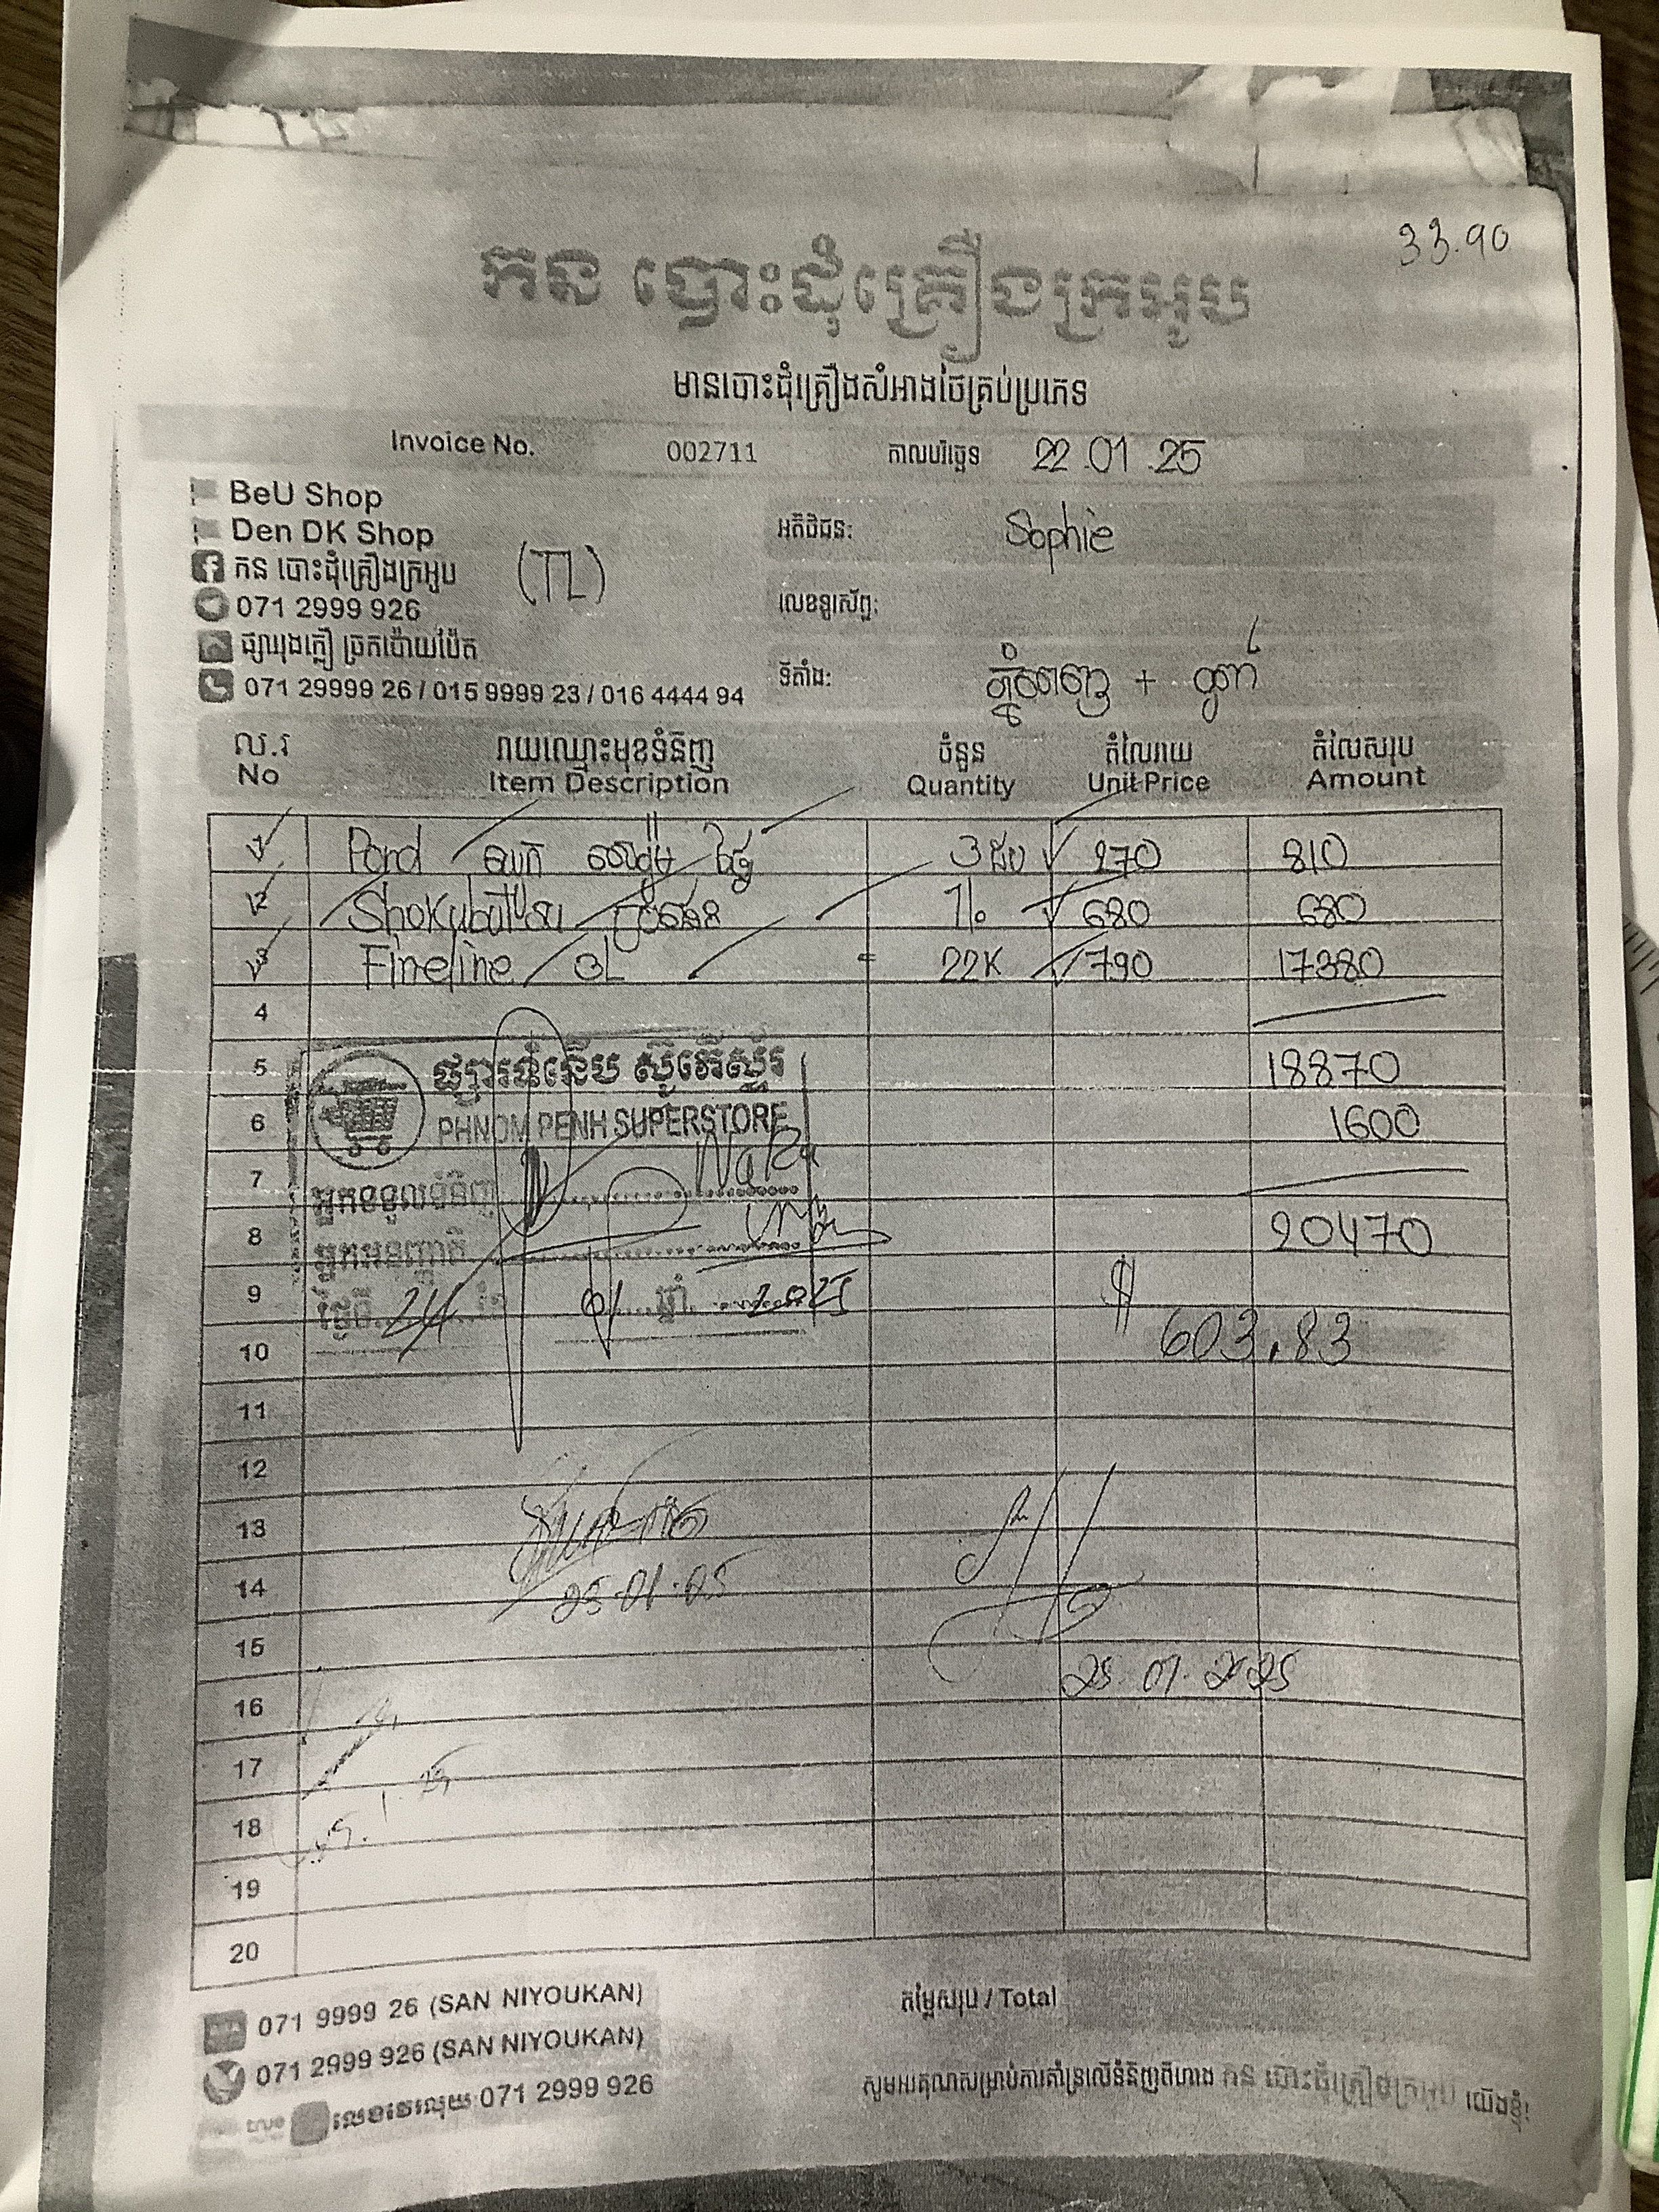 33.90
កន បោះដុំគ្រឿងក្រអូប
មានបោះដុំគ្រឿងសំអាងថៃគ្រប់ប្រភេទ
Invoice No. 002711 កាលបរិច្ឆេទ 22.01.25
BeU Shop
Den DK Shop
កន បោះដុំគ្រឿងក្រអូប (TL)
071 2999 926
ផ្សារុងក្លឿ ច្រកប៉ោយប៉ែត
071 29999 26 / 015 9999 23 / 016 4444 94
អតិថិជន: Sophie
លេខទូរស័ព្ទ:
ទីតាំង: ភ្នំពេញ +
ល.រ រាយឈ្មោះមុខទំនិញ ចំនួន តំលៃរាយ តំលៃសរុប
No Item Description Quantity Unit Price Amount
1 Pond 3 270 810
2 680 680
3 Fineline 3L 22K 790 17380
4
5 18870
6 1600
7
8 20470
9 $
10 603.83
11
12
13
14
15
16
17
18
19
20
ផ្សារទំនើប ស៊ូភើស្ទ័រ
PHNOM PENH SUPERSTORE
អ្នកទទួលទំនិញ
អ្នកអនុញ្ញាតិ
ថ្ងៃទី 24 ខែ 01 ឆ្នាំ 2025
25.01.25
25.01.2025
25.1.25
071 9999 26 (SAN NIYOUKAN)
071 2999 926 (SAN NIYOUKAN)
true លេខវេរលុយ 071 2999 926
តម្លៃសរុប / Total
សូមអរគុណសម្រាប់ការគាំទ្រលើទំនិញពីហាង កន បោះដុំគ្រឿងក្រអូប យើងខ្ញុំ!